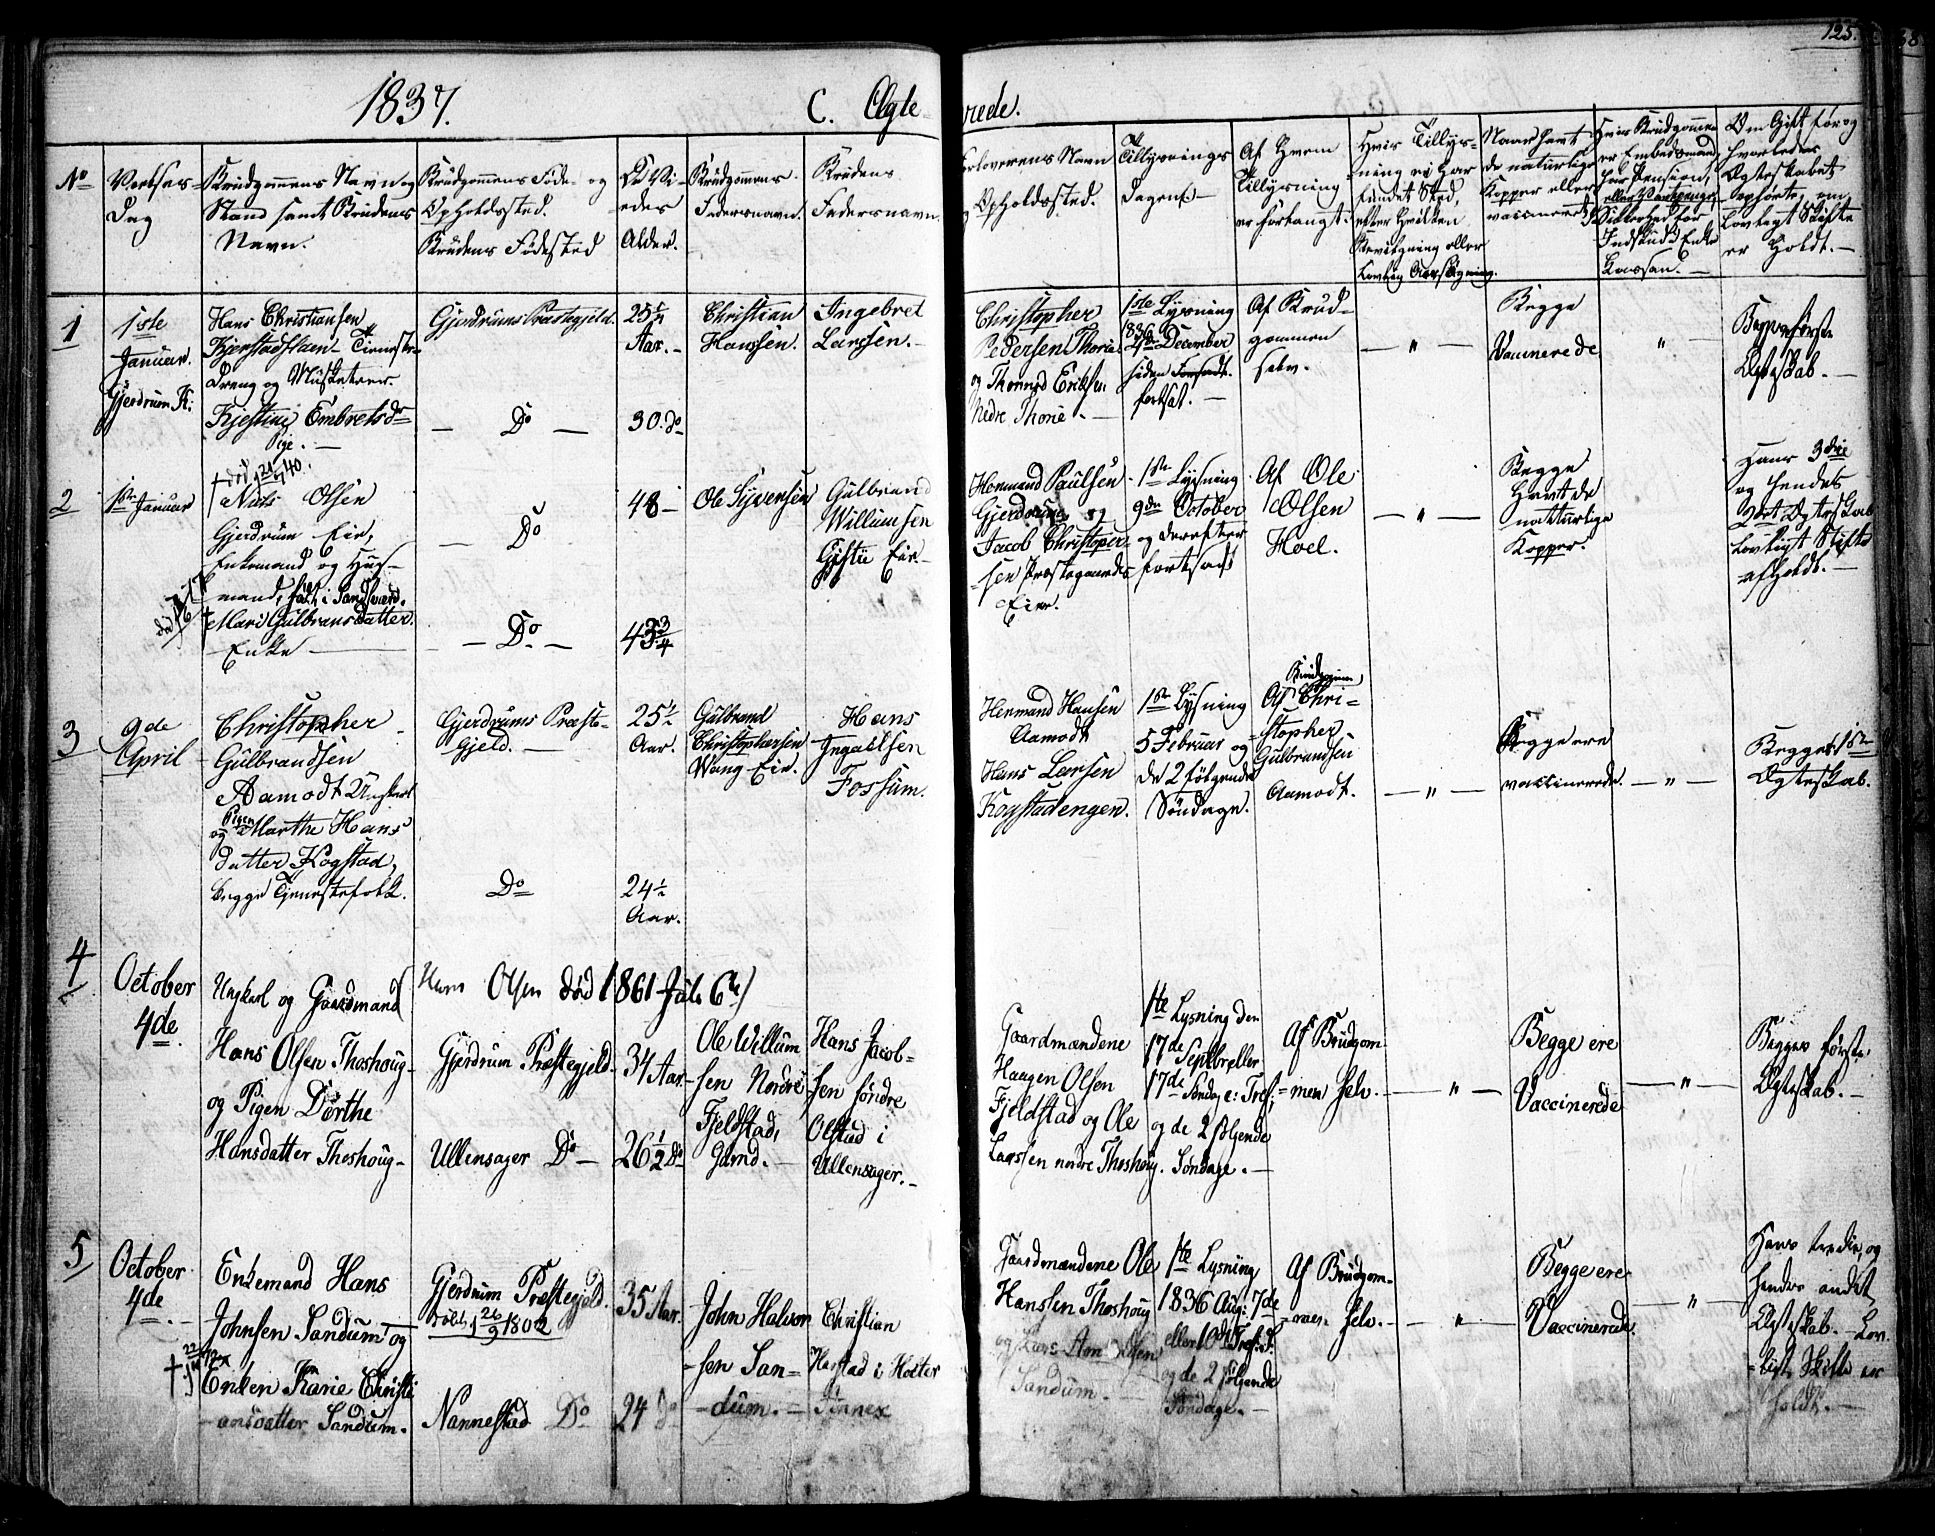 125.
1837.
C. Ægte-
viede.
No
Vielses-
Dag
Brudgommens Navn og
Stand samt Brudens
Navn.
Brudgommens Føde- og
Opholdssted.
Brudens Fødested
De Vi-
edes
Alder.
Brudgommens
Fadersnavn.
Brudens
Fadersnavn.
Forloverens Navn
og Opholdssted.
Tillysnings
Dagene
Af Hvem
Tillysning
er forlangt.
Hvis Tillys-
ning ei har
fundet Sted,
efter hvilken
Bevilgning eller
Lovlig
Naar havt
de naturlige
Kopper eller
vaccineret
Hvis Brudgommen
er Embedsmand
har Pension,
eller
Sikkerhed for
Indskud i Enke
Kassen. —
Om Gift før og
hvorledes
Ægteskabet
ophørte, om
Lovligt Skifte
er Holdt. —
1
1ste
Januar.
Gjerdrum K:
Hans Christiansen
Kjerstadflaen Tieneste-
Dreng og Musketeer.
Kjestine Embretsd
Pige. —
Gjerdrums Præstegjeld.
— Do —
25½
Aar. —
30. do
Christian
Hanssen.
Ingebret
Larssen. —
Christopher
Pedersen Thorie
og Thomas Eriksen
Nedre Thorie. —
1ste Lysning
1836
4de December
siden
fortsat. —
Af Brud-
gommen
selv.
— " —
Begge
Vaccinerede
"
Begges første
Ægteskab. —
2
1ste Januar
† død 21/7 40.
Niels Olsen
Gjerdrum Eie,
Enkemand og Huus-
mand, født i Sandsværd.
Mari Gulbransdatter.
Enke —
død
— Do
— Do. —
48 —
43¾
Ole Syversen
Gulbrand
Willumsen
Gjstie Eie. —
Hermand Paulsen
Gjerdrum og
Jacob Christopher-
sen Præstegaards
Eie.
1ste Lysning
9de October
og derefter
fortsat
Af Ole
Olsen
Hoel.
— " —
Begge
Havt de
naturlige
Kopper.
Hans 3die
og hendes
2det Ægteskab
Lovligt Skifte
afholdt. —
3
9de
April
Christopher
Gulbrandsen
Aamodt Ungkarl
og Pigen Marthe Hans
datter Kogstad,
begge Tjenestefolk.
Gjerdrums Præste-
Gjeld. —
Do
25½
Aar.
24½
Aar.
Gulbrand
Christophersen
Wang Eie.
Hans
Ingailsen
Fossum.
Hermand Hansen
Aamodt
Hans Larsen
Kogstadengen.
1ste Lysning
5 Februar og
de 2 følgende
Søndage.
Brudgom
Af Chri-
stopher
Gulbrandsen
Aamodt.
— " —
Begge ere
vaccinerede.
— " —
Begges 1ste
Ægteskab.
4
October
4de.
Ungkarl og Gaardmand
(Hans Olsen død 1861 Juli 6te)
Hans Olsen Thoshoug-
og Pigen Dorthe
Hansdatter Thoshoug-
Gjerdrum Præstegjeld.
Ullensager Do —
34 Aar.
26½ Do
Ole Willum
sen Nordre
Fjeldstad,
Gmd. —
Hans Jacob=
sen søndre
Olstad i
Ullensager. —
Gaardmændene
Haagen Olsen
Fjeldstad og Ole
Larssen nordre Thoshoug.
1ste Lysning den
17de Septbr eller
17de Søndag e: Tref:
og de 2 følgende
Søndage. —
Af Brudgom
=men selv.
— " —
Begge ere
Vaccinerede
— " —
Begges første
Ægteskab. —
5
October
4de. —
Enkemand Hans
Johnsen Sandum og
Enken Karie Christi
ansdatter Sandum.
Gjerdrum Præstegjeld.
døbt 26/9 1802
Nannestad Do
35 Aar.
24 do
John Halvor
=sen San=
=dum. —
Christian
Harstad i Holter
Annex
Gaardmændene Ole
Hanssen Thoshoug
og Lars Amundsen
Sandum. —
1ste Lysning
1836 Aug: 7de
eller 10de Tref: S.
og de 2 følgende
Søndage. —
Af Brudgom-
men selv.
— " —
Begge ere
Vaccinerede.
— " —
Hans tredie, og
hendes andet
Ægteskab. — Lov=
=ligt Skifte er
holdt. —